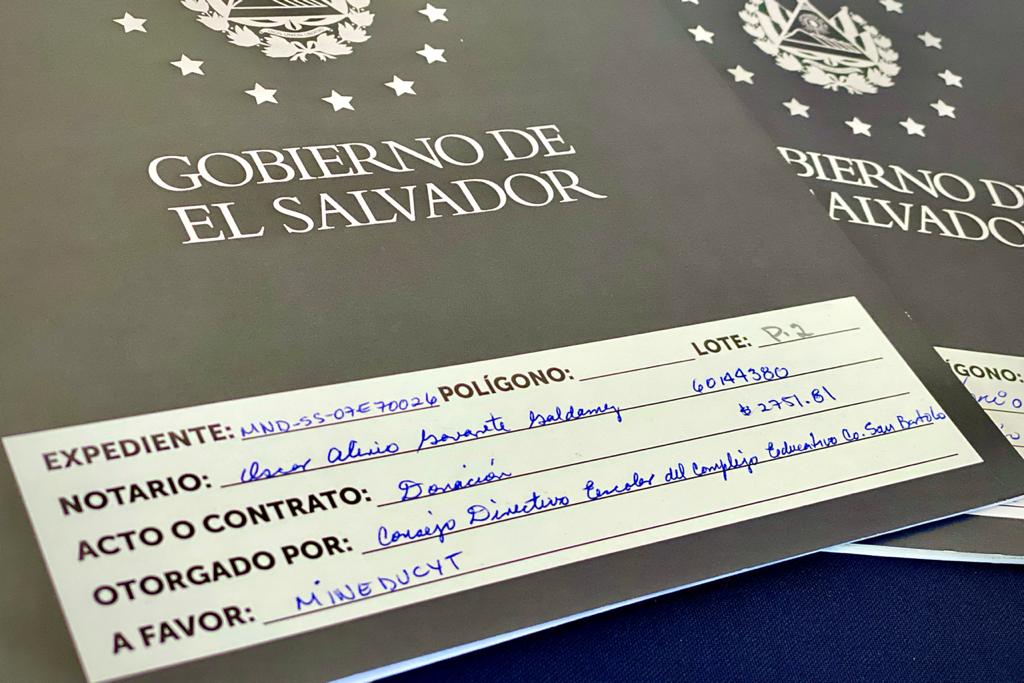 GOBIERNO DE
EL SALVADOR
EXPEDIENTE: MND-SS-07E70026 POLÍGONO: LOTE: P.2
NOTARIO: Oscar Alirio 60144380
ACTO O CONTRATO: Donación $ 2751.81
OTORGADO POR: Consejo Directivo Escolar del Complejo Educativo Co. San Bartolo
A FAVOR: MINEDUCYT
BIERNO D
ALVADO
GONO: